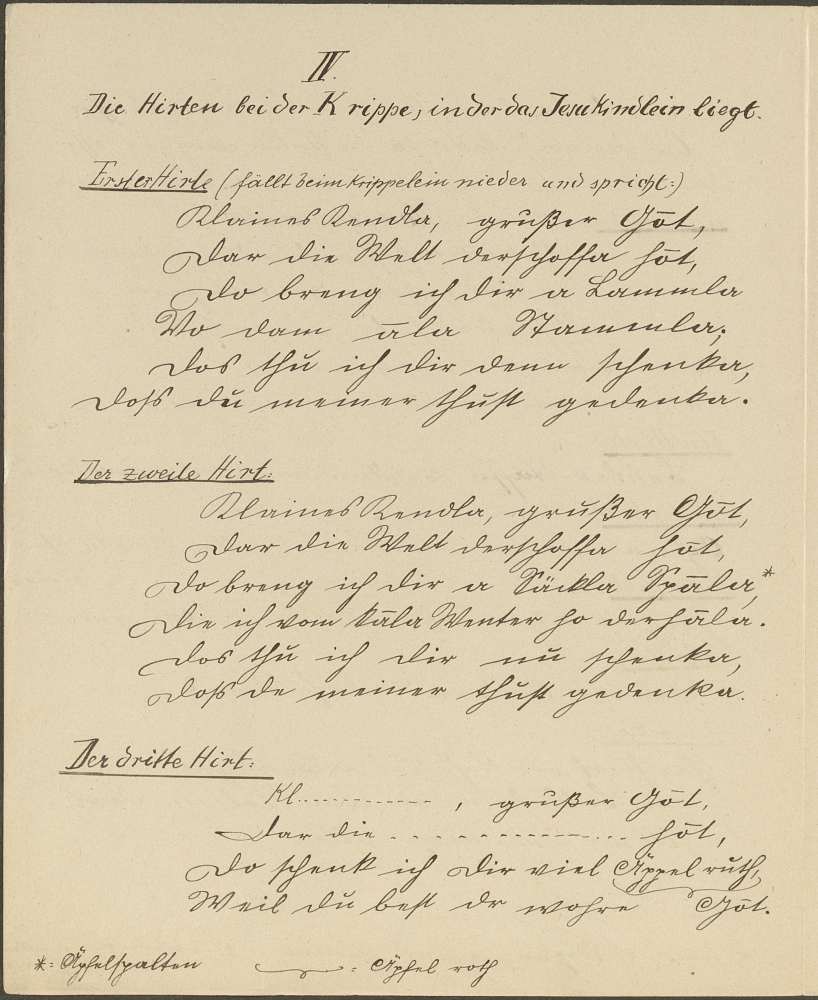 IV.
Die Hirten bei der Krippe, in der das Jesukindlein liegt.
Erster Hirte (fällt beim Krippelein nieder und spricht:)
Klaines Kendla, grußer Gōt,
Dar die Welt derschoffa hōt,
Do breng ich dir a Lammla
Vo dam āla Stammla;
Dos thu ich dir denn schenka,
Doß du meiner thust gedenka.
Der zweite Hirt:
Klaines Kendla, grußer Gōt,
Dar die Welt derschoffa hōt,
Do breng ich dir a Säckla Spāla,*
Die ich vom kāla Wenter ho derhāla.
Dos thu ich dir nu schenka,
Doß de meiner thust gedenka.
Der dritte Hirt:
Kl............, grußer Gōt,
Dar die - - - - - - - - - - - - hōt,
Do schenk ich dir viel Äppel ruth,
Weil du best dr wohre Gōt.
*= Äpfelspalten = Äpfel roth